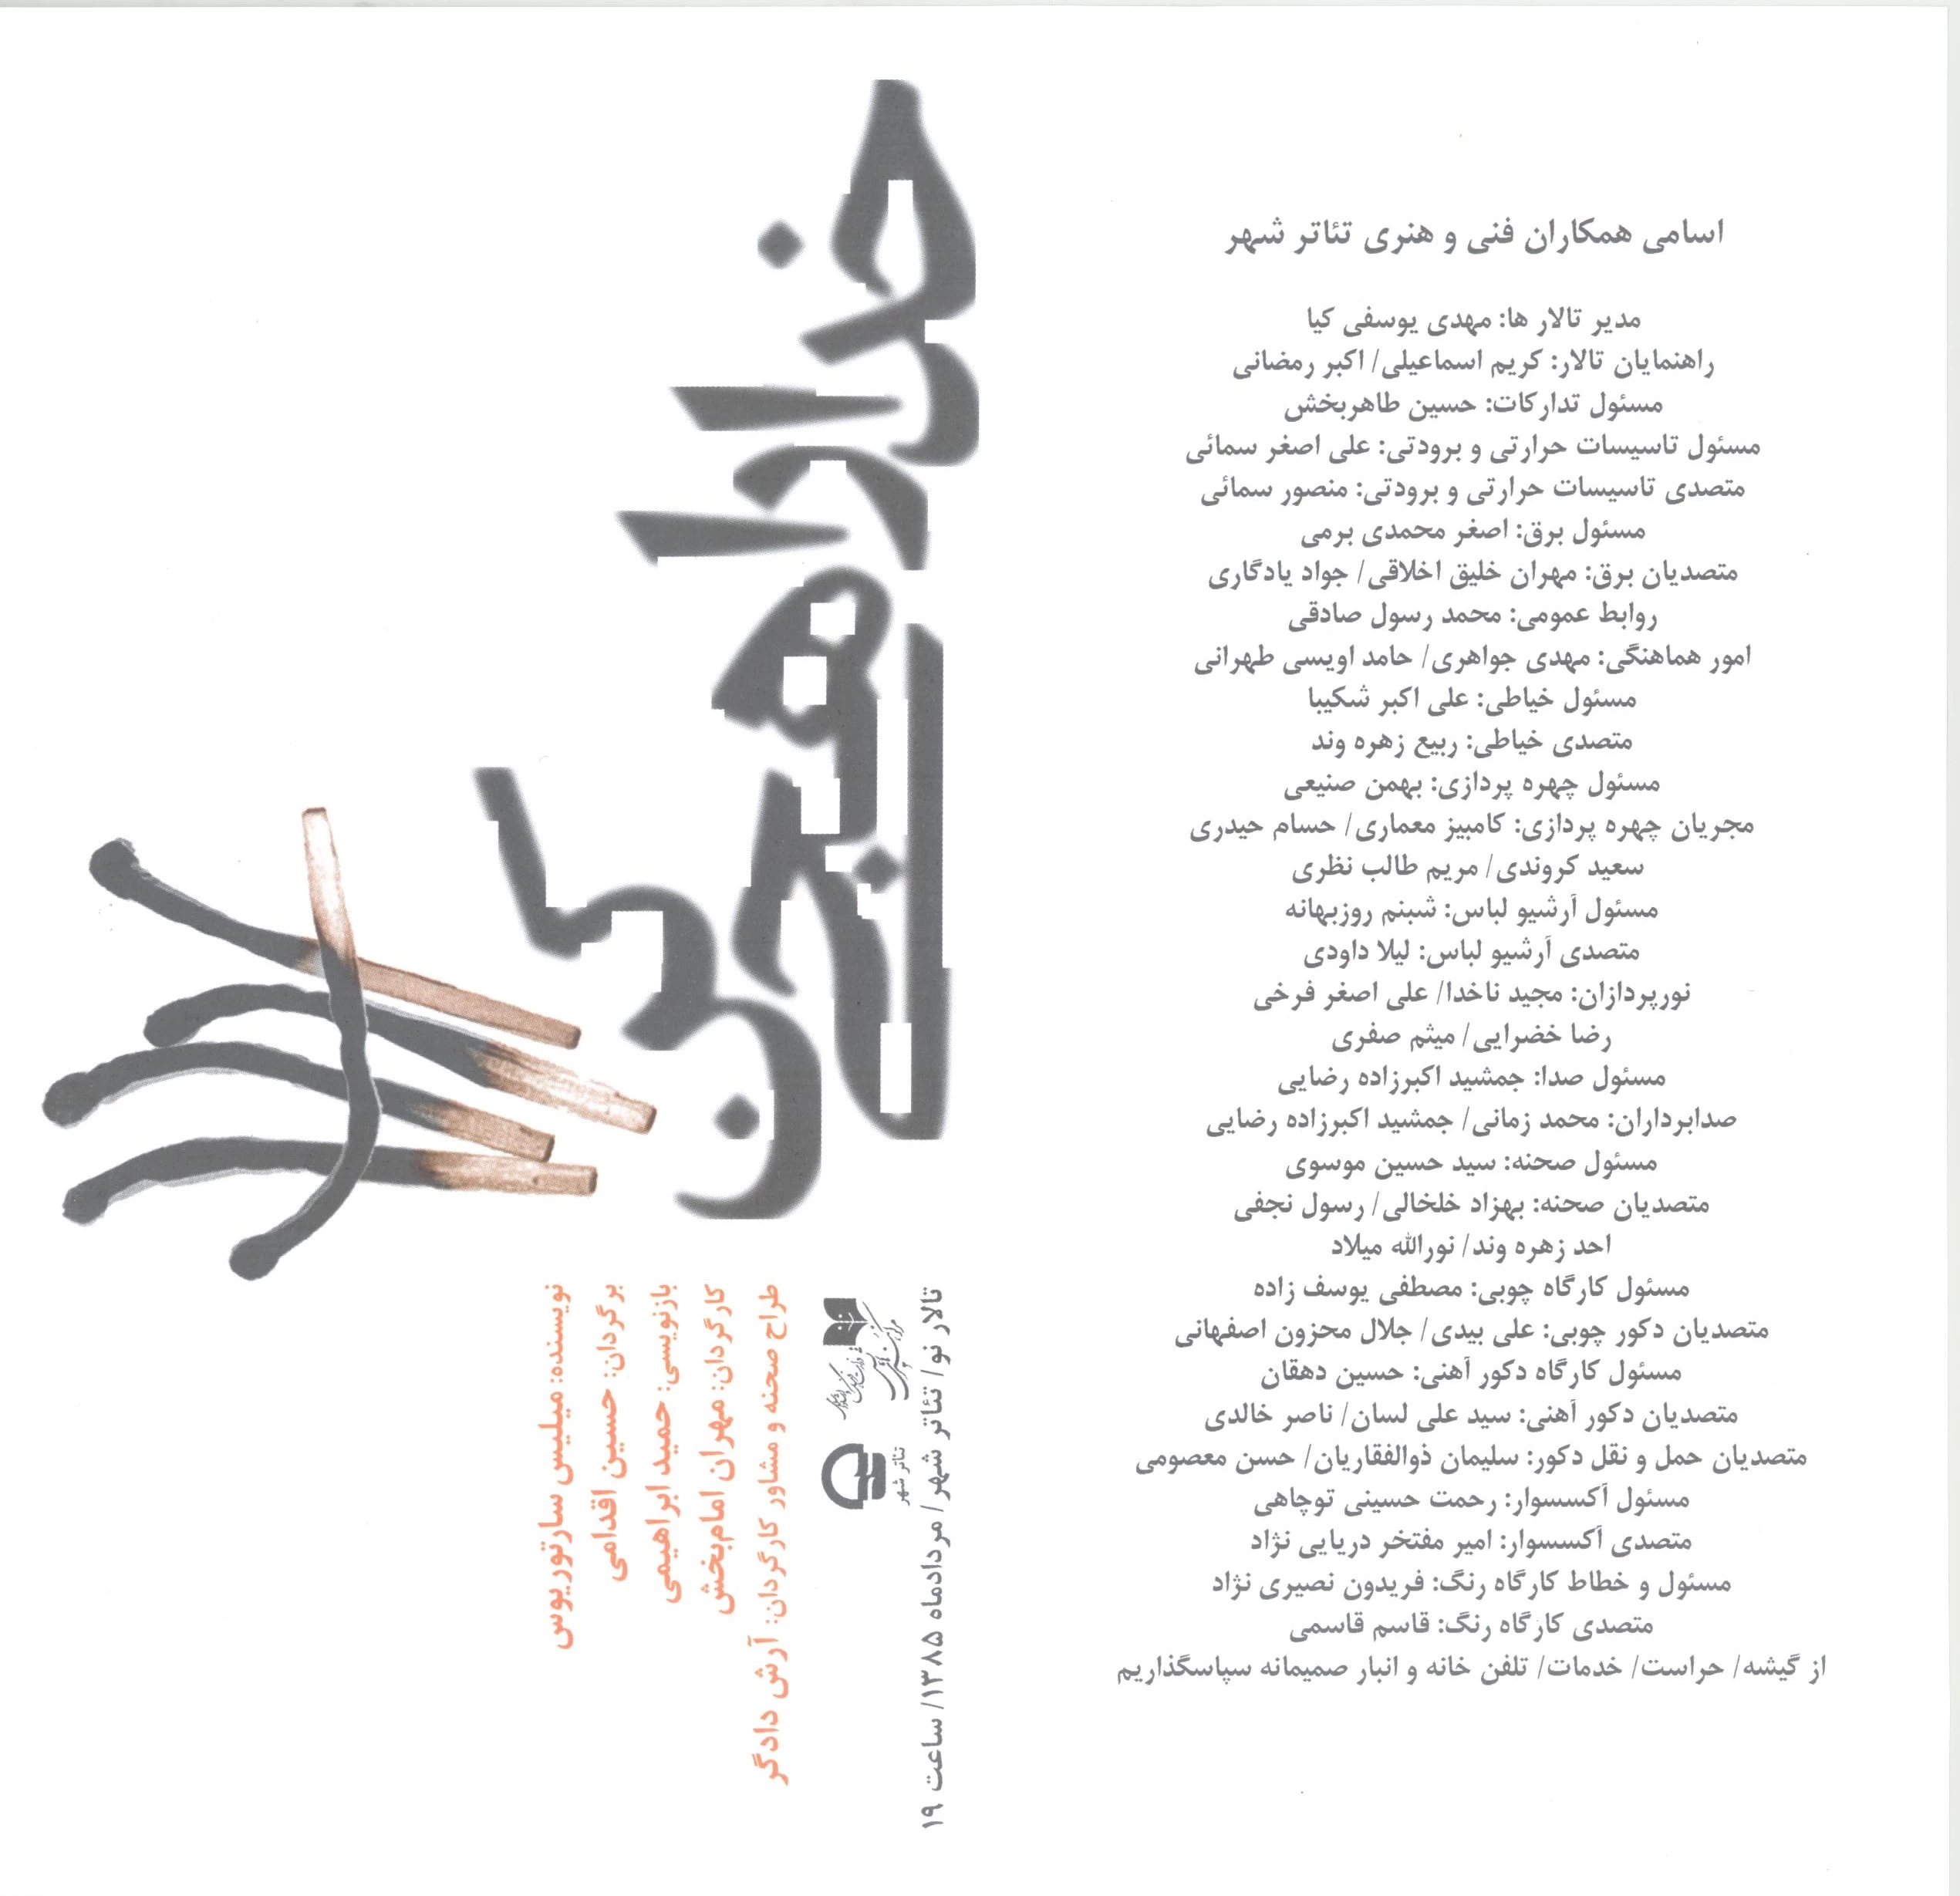 خدا را هجی کن
نویسنده: میلیس سارتوریوس
برگردان: حسین اقدامی
بازنویسی: حمید ابراهیمی
کارگردان: مهران امام‌بخش
طراح صحنه و مشاور کارگردان: آرش دادگر
تئاتر شهر
تالار نو/ تئاتر شهر/ مردادماه ۱۳۸۵/ ساعت ۱۹
اسامی همکاران فنی و هنری تئاتر شهر
مدیر تالار ها: مهدی یوسفی کیا
راهنمایان تالار: کریم اسماعیلی/ اکبر رمضانی
مسئول تدارکات: حسین طاهربخش
مسئول تاسیسات حرارتی و برودتی: علی اصغر سمائی
متصدی تاسیسات حرارتی و برودتی: منصور سمائی
مسئول برق: اصغر محمدی برمی
متصدیان برق: مهران خلیق اخلاقی/ جواد یادگاری
روابط عمومی: محمد رسول صادقی
امور هماهنگی: مهدی جواهری/ حامد اویسی طهرانی
مسئول خیاطی: علی اکبر شکیبا
متصدی خیاطی: ربیع زهره وند
مسئول چهره پردازی: بهمن صنیعی
مجریان چهره پردازی: کامبیز معماری/ حسام حیدری
سعید کروندی/ مریم طالب نظری
مسئول آرشیو لباس: شبنم روزبهانه
متصدی آرشیو لباس: لیلا داودی
نورپردازان: مجید ناخدا/ علی اصغر فرخی
رضا خضرایی/ میثم صفری
مسئول صدا: جمشید اکبرزاده رضایی
صدابرداران: محمد زمانی/ جمشید اکبرزاده رضایی
مسئول صحنه: سید حسین موسوی
متصدیان صحنه: بهزاد خلخالی/ رسول نجفی
احد زهره وند/ نورالله میلاد
مسئول کارگاه چوبی: مصطفی یوسف زاده
متصدیان دکور چوبی: علی بیدی/ جلال محزون اصفهانی
مسئول کارگاه دکور آهنی: حسین دهقان
متصدیان دکور آهنی: سید علی لسان/ ناصر خالدی
متصدیان حمل و نقل دکور: سلیمان ذوالفقاریان/ حسن معصومی
مسئول آکسسوار: رحمت حسینی توچاهی
متصدی آکسسوار: امیر مفتخر دریایی نژاد
مسئول و خطاط کارگاه رنگ: فریدون نصیری نژاد
متصدی کارگاه رنگ: قاسم قاسمی
از گیشه/ حراست/ خدمات/ تلفن خانه و انبار صمیمانه سپاسگذاریم